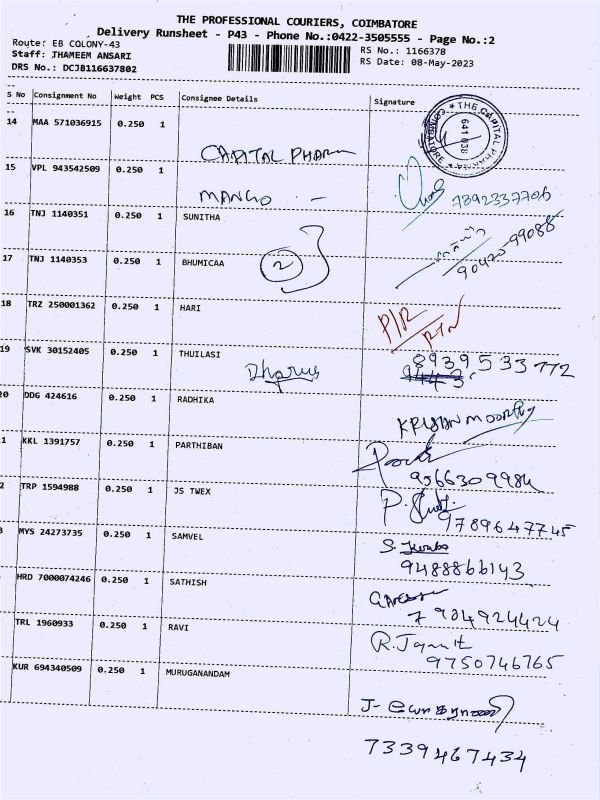 THE PROFESSIONAL COURIERS, COIMBATORE
Delivery Runsheet - P43 - Phone No.:0422-3505555 - Page No.:2
Route: EB COLONY-43
Staff: JHAMEEM ANSARI
DRS No.: DCJB116637802
RS No.: 1166378
RS Date: 08-May-2023
S No Consignment No Weight PCS Consignee Details Signature
14 MAA 571036915 0.250 1
CAPITAL PHARM
THE CAPITAL PHARMA
COIMBATORE
641 038
15 VPL 943542509 0.250 1
MANGO -
7892337706
16 TNJ 1140351 0.250 1 SUNITHA
90420-99088
17 TNJ 1140353 0.250 1 BHUMICAA
2
18 TRZ 250001362 0.250 1 HARI
P/R
RTN
19 SVK 30152405 0.250 1 THUILASI
8939533772
9443
20 DDG 424616 0.250 1 RADHIKA
KRISHNAMOORTHY
1 KKL 1391757 0.250 1 PARTHIBAN
9566309984
2 TRP 1594988 0.250 1 JS TWEX
9789647745
3 MYS 24273735 0.250 1 SAMVEL
9488866143
HRD 7000074246 0.250 1 SATHISH
7904924424
TRL 1960933 0.250 1 RAVI
9750746765
KUR 694340509 0.250 1 MURUGANANDAM
7339467434